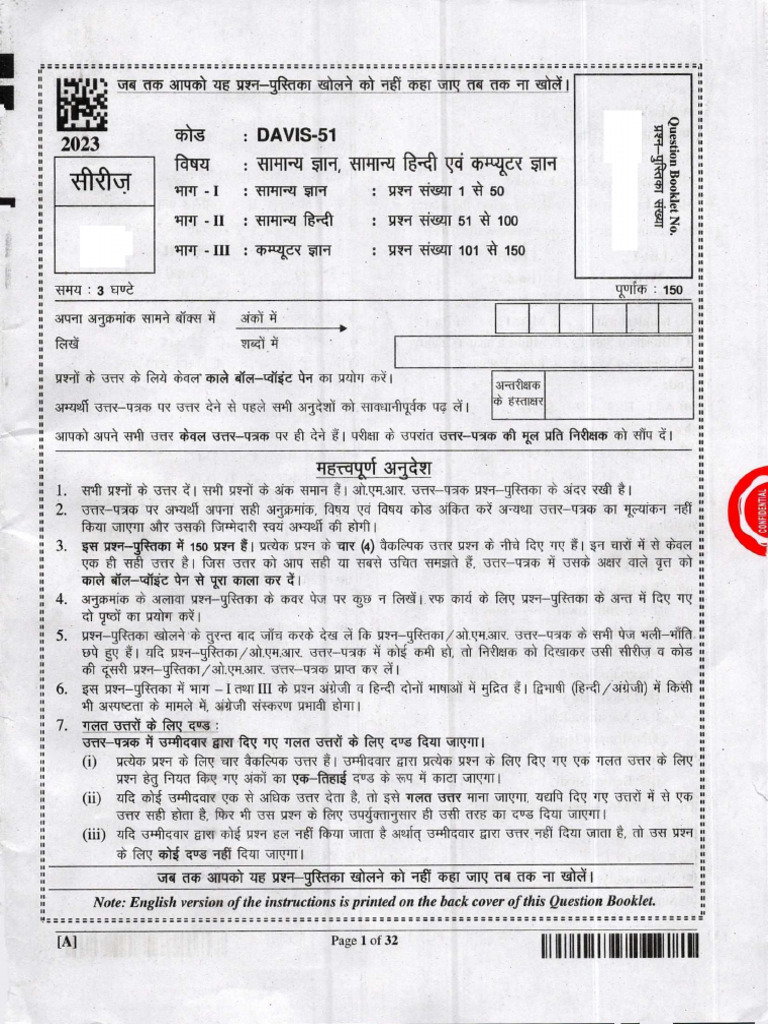 जब तक आपको यह प्रश्न–पुस्तिका खोलने को नहीं कहा जाए तब तक ना खोलें।
2023
कोड : DAVIS-51
सीरीज़
विषय : सामान्य ज्ञान, सामान्य हिन्दी एवं कम्प्यूटर ज्ञान
भाग - I : सामान्य ज्ञान : प्रश्न संख्या 1 से 50
भाग - II : सामान्य हिन्दी : प्रश्न संख्या 51 से 100
भाग - III : कम्प्यूटर ज्ञान : प्रश्न संख्या 101 से 150
Question Booklet No.
प्रश्न–पुस्तिका संख्या
समय : 3 घण्टे पूर्णांक : 150
अपना अनुक्रमांक सामने बॉक्स में अंकों में
लिखें शब्दों में
प्रश्नों के उत्तर के लिये केवल काले बॉल–प्वॉइंट पेन का प्रयोग करें।
अभ्यर्थी उत्तर–पत्रक पर उत्तर देने से पहले सभी अनुदेशों को सावधानीपूर्वक पढ़ लें।
अन्तरीक्षक
के हस्ताक्षर
आपको अपने सभी उत्तर केवल उत्तर–पत्रक पर ही देने हैं। परीक्षा के उपरांत उत्तर–पत्रक की मूल प्रति निरीक्षक को सौंप दें।
महत्त्वपूर्ण अनुदेश
1. सभी प्रश्नों के उत्तर दें। सभी प्रश्नों के अंक समान हैं। ओ.एम.आर. उत्तर–पत्रक प्रश्न–पुस्तिका के अंदर रखी है।
2. उत्तर–पत्रक पर अभ्यर्थी अपना सही अनुक्रमांक, विषय एवं विषय कोड अंकित करें अन्यथा उत्तर–पत्रक का मूल्यांकन नहीं
किया जाएगा और उसकी जिम्मेदारी स्वयं अभ्यर्थी की होगी।
3. इस प्रश्न–पुस्तिका में 150 प्रश्न हैं। प्रत्येक प्रश्न के चार (4) वैकल्पिक उत्तर प्रश्न के नीचे दिए गए हैं। इन चारों में से केवल
एक ही सही उत्तर है। जिस उत्तर को आप सही या सबसे उचित समझते हैं, उत्तर–पत्रक में उसके अक्षर वाले वृत्त को
काले बॉल–प्वॉइंट पेन से पूरा काला कर दें।
4. अनुक्रमांक के अलावा प्रश्न–पुस्तिका के कवर पेज पर कुछ न लिखें। रफ कार्य के लिए प्रश्न–पुस्तिका के अन्त में दिए गए
दो पृष्ठों का प्रयोग करें।
5. प्रश्न–पुस्तिका खोलने के तुरन्त बाद जाँच करके देख लें कि प्रश्न–पुस्तिका/ओ.एम.आर. उत्तर–पत्रक के सभी पेज भली–भाँति
छपे हुए हैं। यदि प्रश्न–पुस्तिका/ओ.एम.आर. उत्तर–पत्रक में कोई कमी हो, तो निरीक्षक को दिखाकर उसी सीरीज़ व कोड
की दूसरी प्रश्न–पुस्तिका/ओ.एम.आर. उत्तर–पत्रक प्राप्त कर लें।
6. इस प्रश्न–पुस्तिका में भाग – I तथा III के प्रश्न अंग्रेजी व हिन्दी दोनों भाषाओं में मुद्रित हैं। द्विभाषी (हिन्दी/अंग्रेजी) में किसी
भी अस्पष्टता के मामले में, अंग्रेजी संस्करण प्रभावी होगा।
7. गलत उत्तरों के लिए दण्ड :
उत्तर–पत्रक में उम्मीदवार द्वारा दिए गए गलत उत्तरों के लिए दण्ड दिया जाएगा।
(i) प्रत्येक प्रश्न के लिए चार वैकल्पिक उत्तर हैं। उम्मीदवार द्वारा प्रत्येक प्रश्न के लिए दिए गए एक गलत उत्तर के लिए
प्रश्न हेतु नियत किए गए अंकों का एक–तिहाई दण्ड के रूप में काटा जाएगा।
(ii) यदि कोई उम्मीदवार एक से अधिक उत्तर देता है, तो इसे गलत उत्तर माना जाएगा, यद्यपि दिए गए उत्तरों में से एक
उत्तर सही होता है, फिर भी उस प्रश्न के लिए उपर्युक्तानुसार ही उसी तरह का दण्ड दिया जाएगा।
(iii) यदि उम्मीदवार द्वारा कोई प्रश्न हल नहीं किया जाता है अर्थात् उम्मीदवार द्वारा उत्तर नहीं दिया जाता है, तो उस प्रश्न
के लिए कोई दण्ड नहीं दिया जाएगा।
जब तक आपको यह प्रश्न–पुस्तिका खोलने को नहीं कहा जाए तब तक ना खोलें।
Note: English version of the instructions is printed on the back cover of this Question Booklet.
[A] Page 1 of 32
CONFIDENTIAL